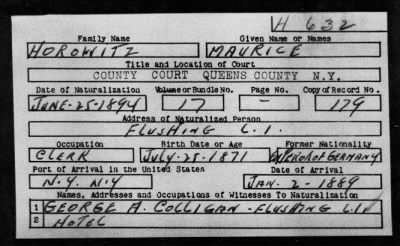 H 632
Family Name Given Name or Names
HOROWITZ MAURICE
Title and Location of Court
COUNTY COURT QUEENS COUNTY N.Y.
Date of Naturalization Volume or Bundle No. Page No. Copy of Record No.
JUNE-25-1894 17 - 179
Address of Naturalized Person
FLUSHING L.I.
Occupation Birth Date or Age Former Nationality
CLERK JULY-25-1871 EMPEROR OF GERMANY
Port of Arrival in the United States Date of Arrival
N.Y. N.Y JAN. 2-1889
Names, Addresses and Occupations of Witnesses To Naturalization
1 GEORGE A. COLLIGAN-FLUSHING L.I.
2 HOTEL